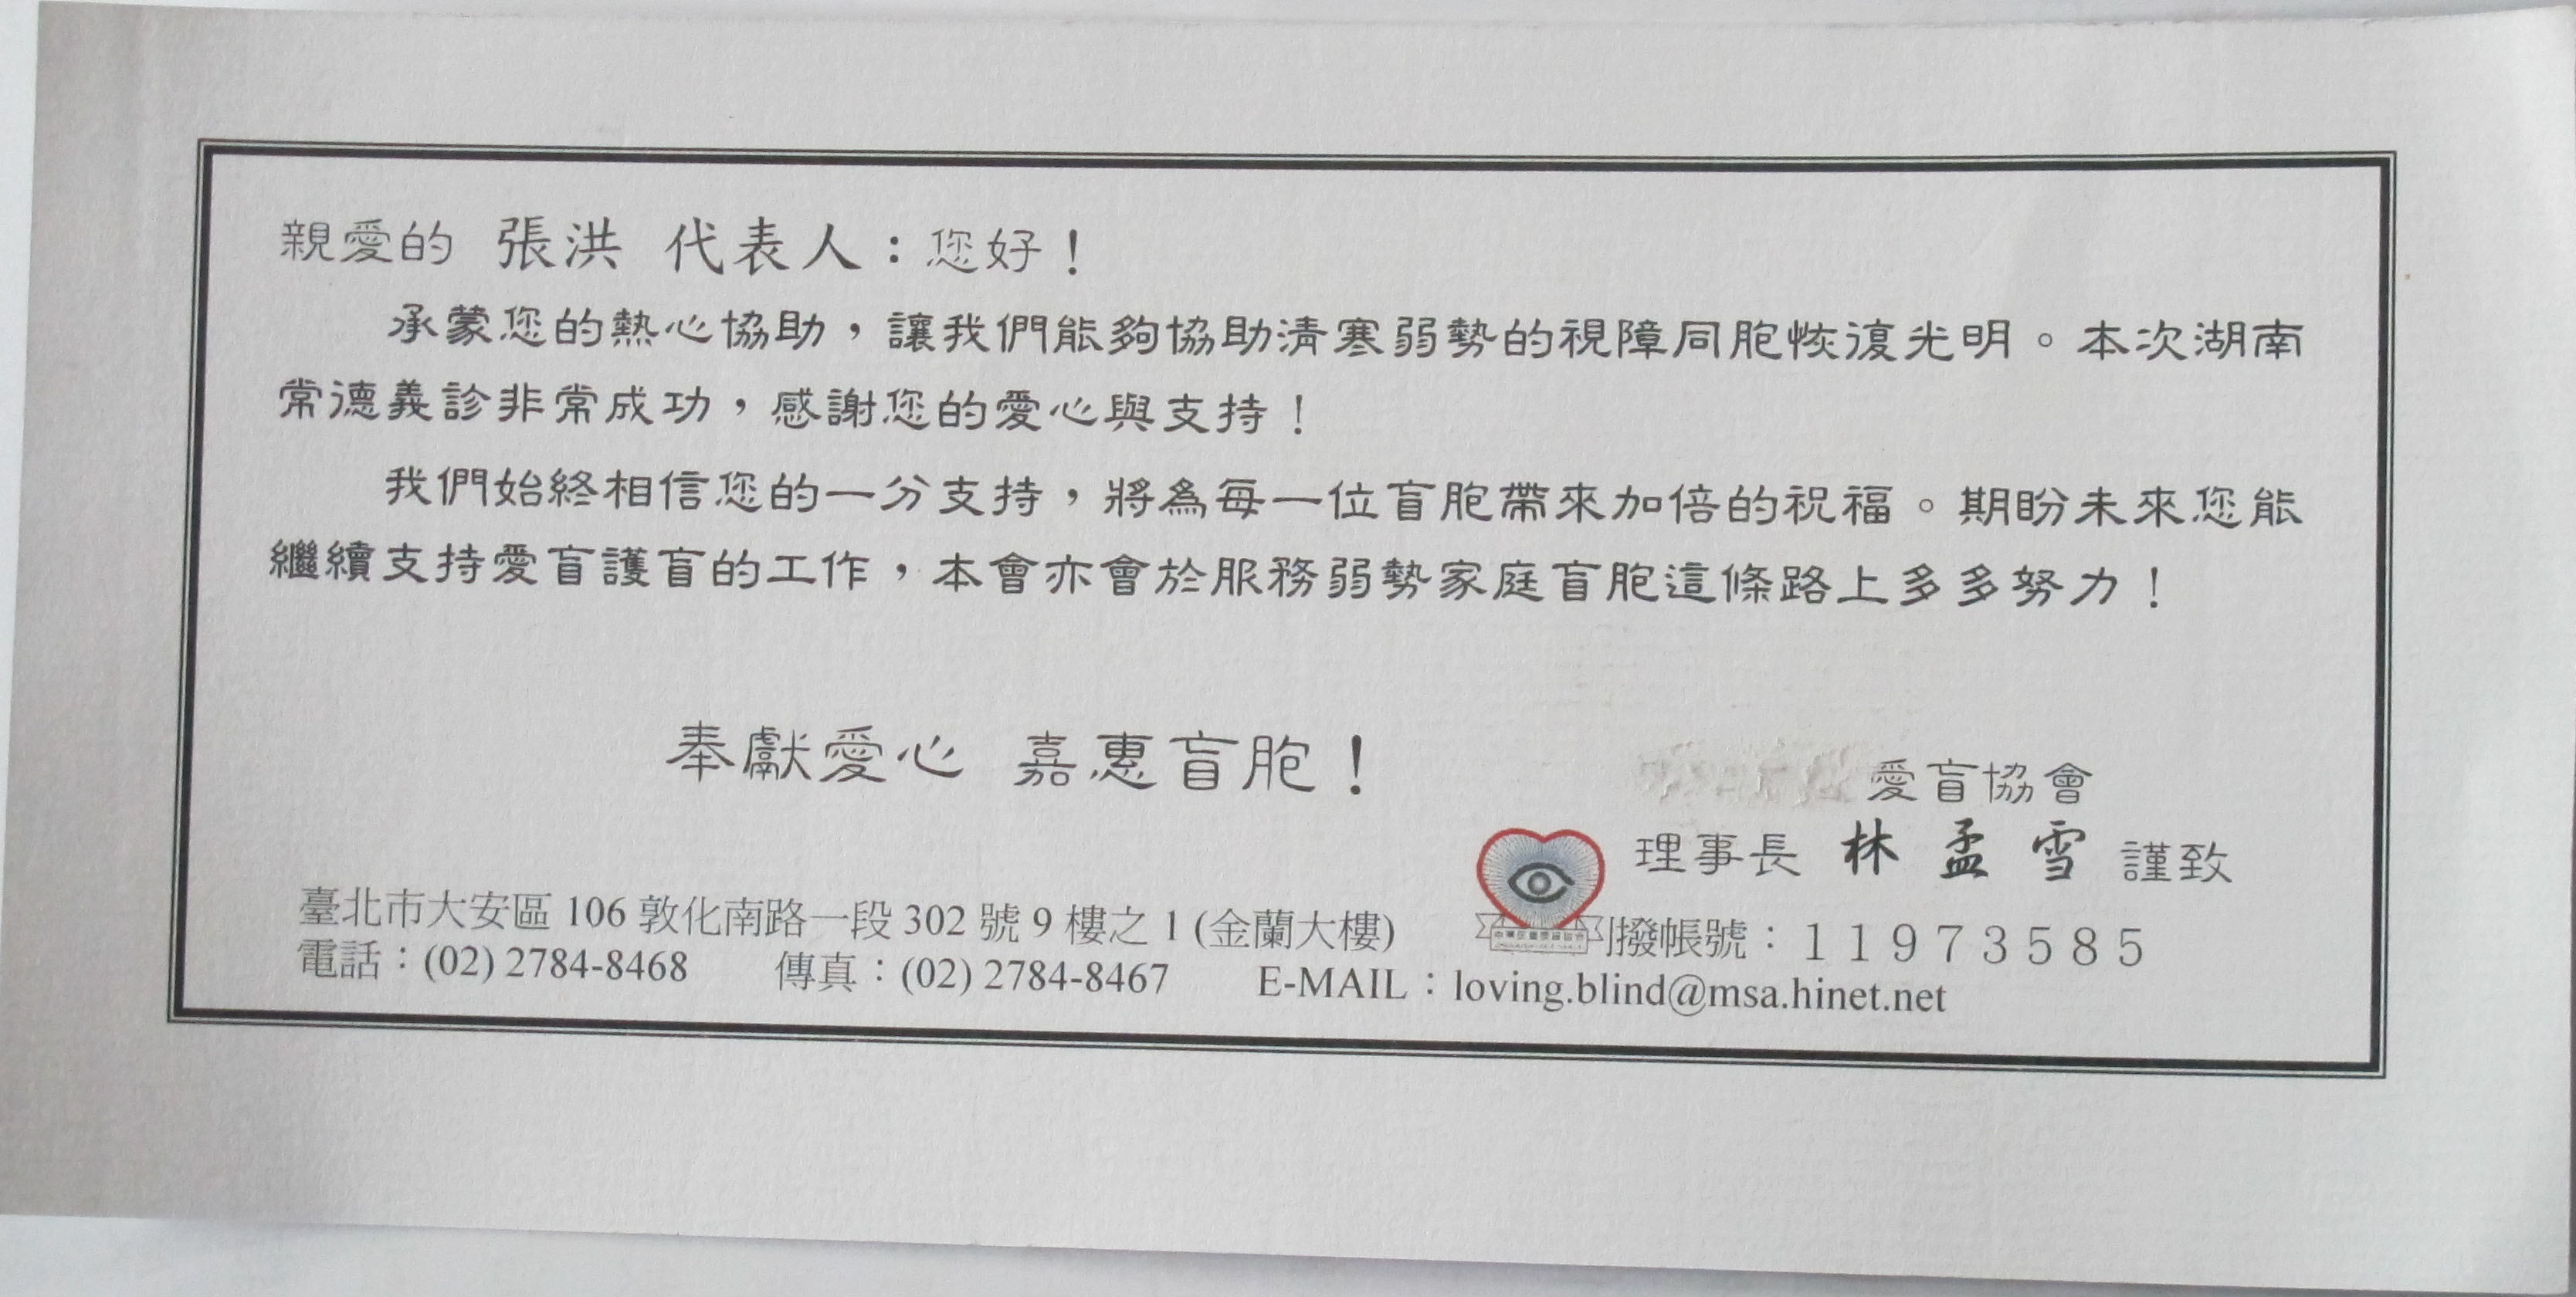 親愛的 張洪 代表人：您好！
承蒙您的熱心協助，讓我們能夠協助清寒弱勢的視障同胞恢復光明。本次湖南
常德義診非常成功，感謝您的愛心與支持！
我們始終相信您的一分支持，將為每一位盲胞帶來加倍的祝福。期盼未來您能
繼續支持愛盲護盲的工作，本會亦會於服務弱勢家庭盲胞這條路上多多努力！
奉獻愛心 嘉惠盲胞！
愛盲協會
理事長 林 孟 雪 謹致
臺北市大安區 106 敦化南路一段 302 號 9 樓之 1 (金蘭大樓)
撥帳號：11973585
電話：(02) 2784-8468 傳真：(02) 2784-8467 E-MAIL：loving.blind@msa.hinet.net